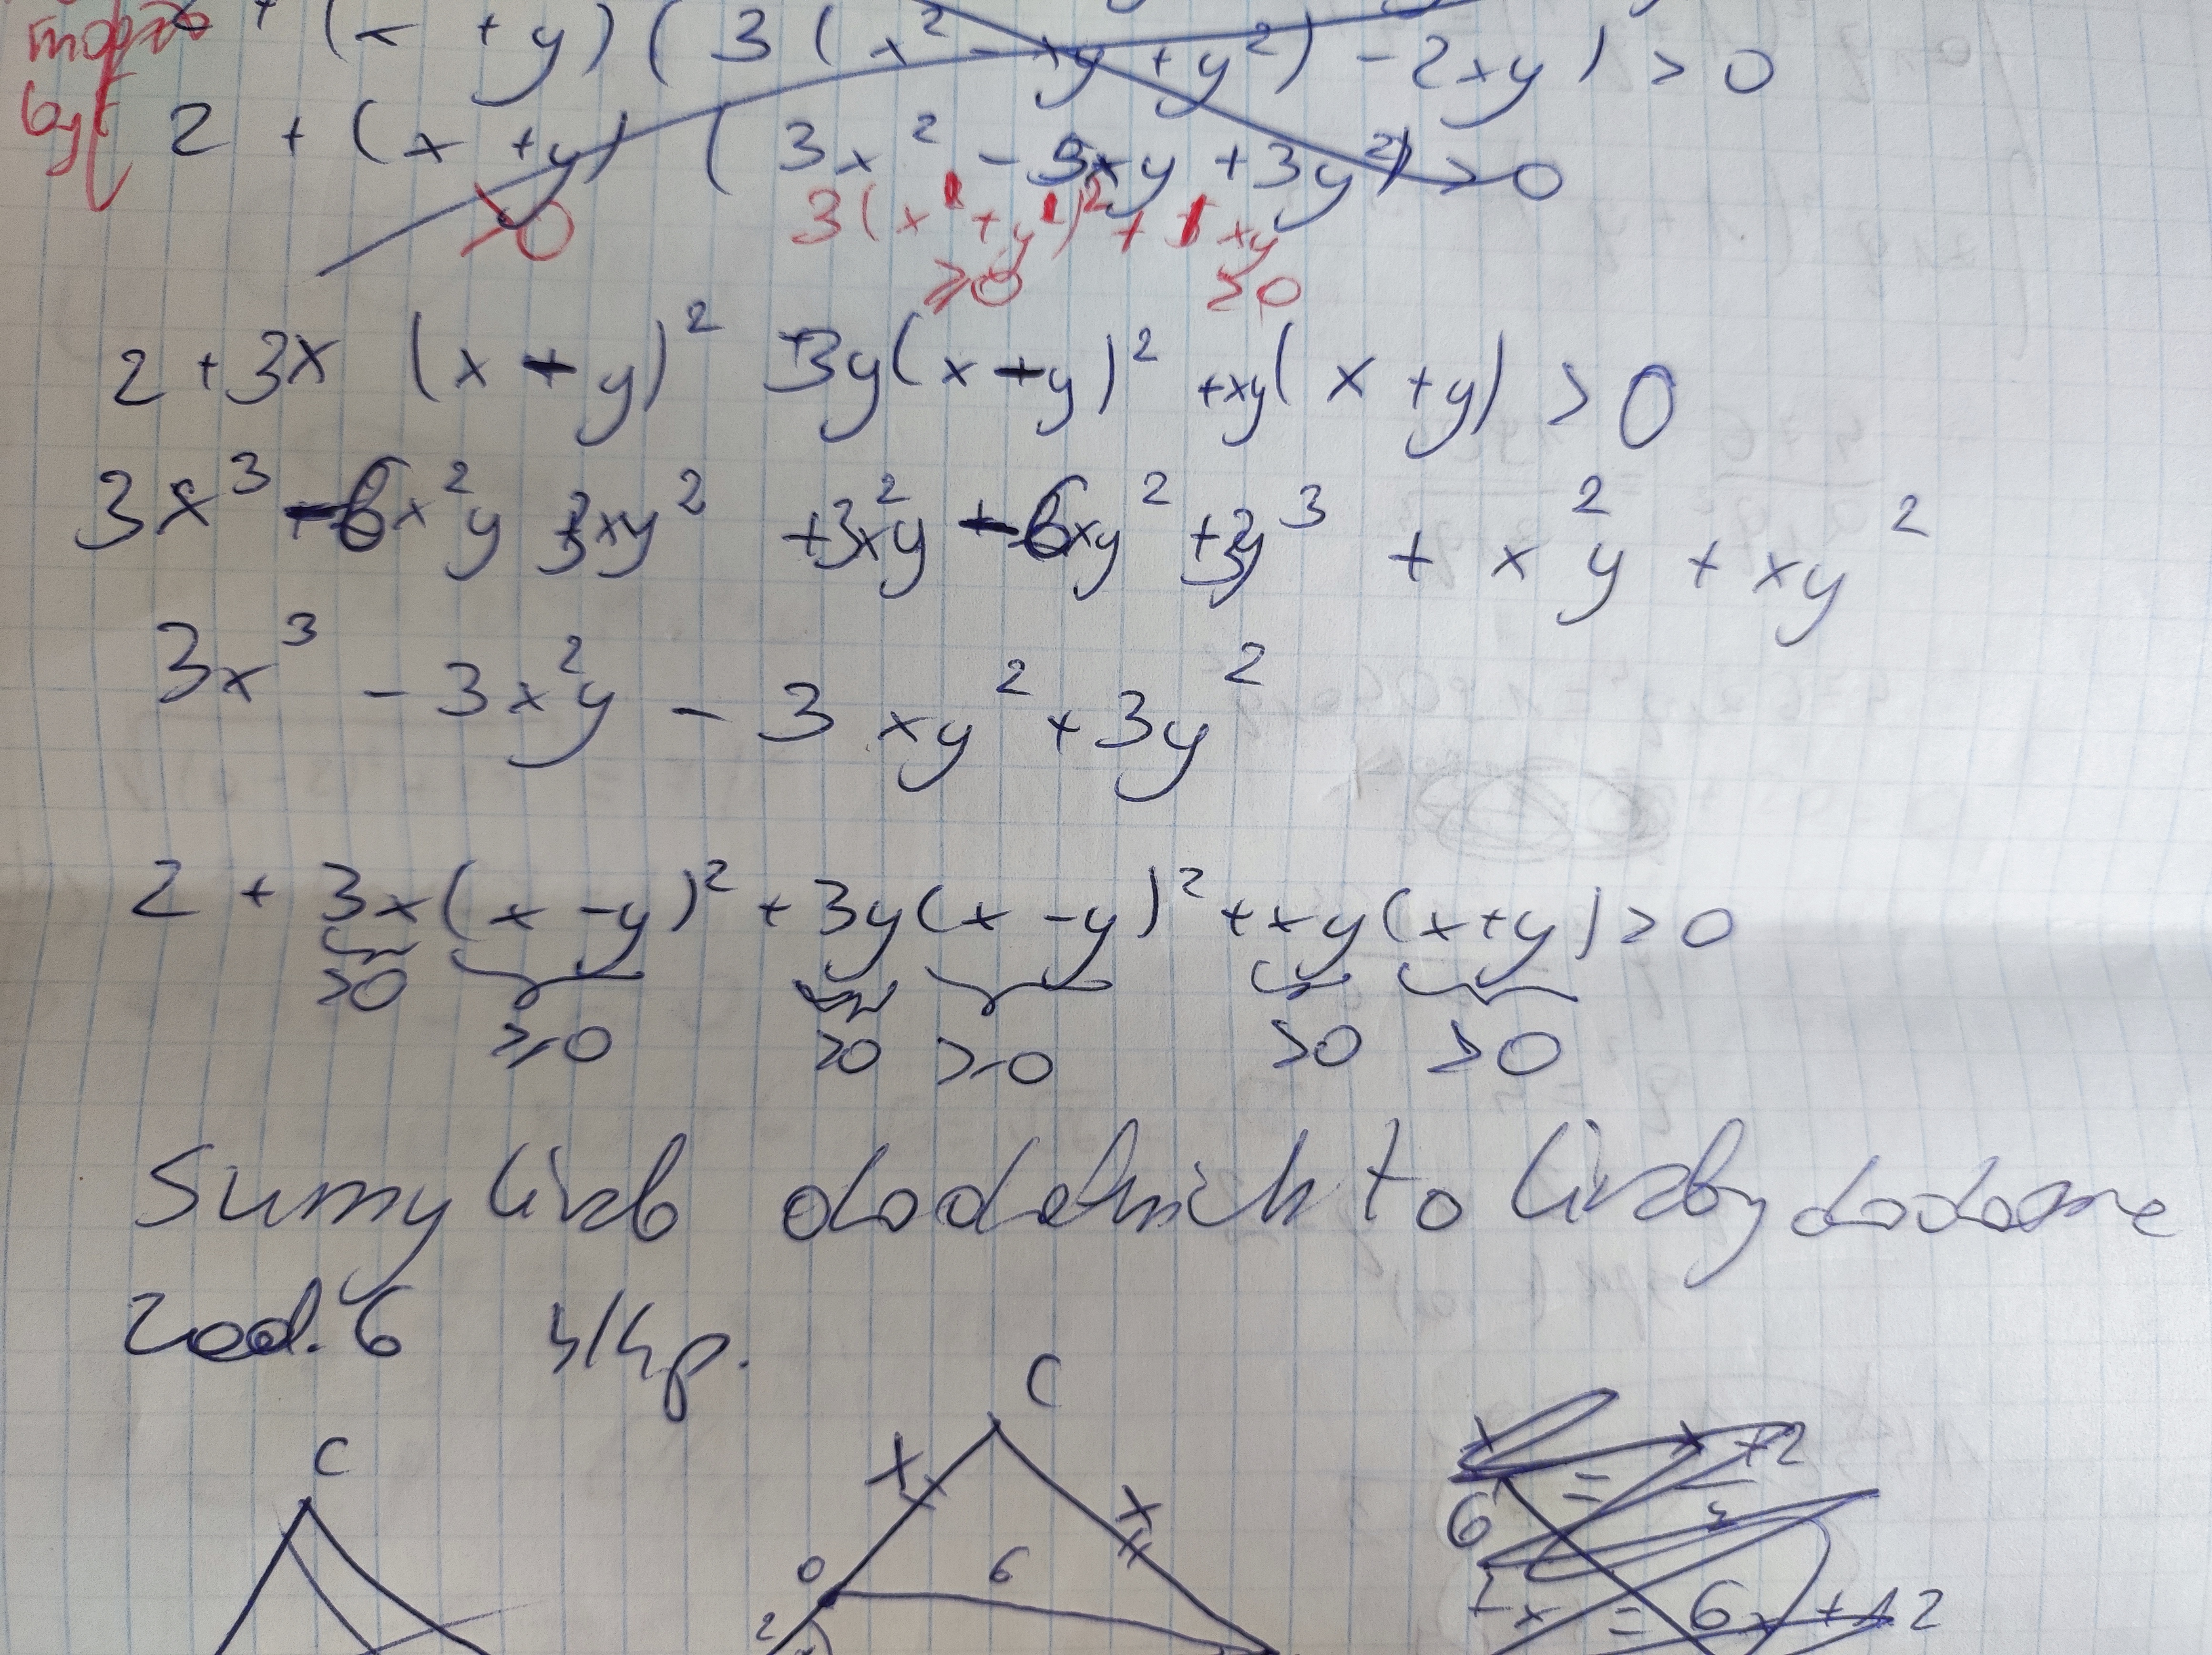 + (x + y) (3 (x² - xy + y²) - 2xy) > 0
być 2 + (x + y) (3x² - 5xy + 3y²) > 0
>0 3(x + y)² + xy
≥0 ≥0
2 + 3x (x - y)² + 3y(x - y)² + xy(x + y) > 0
3x³ - 6x²y + 3xy² + 3x²y - 6xy² + 3y³ + x²y + xy²
3x³ - 3x²y - 3xy² + 3y²
2 + 3x(x - y)² + 3y(x - y)² + xy(x+y) > 0
>0 ≥0 >0 ≥0 >0 >0
Sumy liczb dodatnich to liczby dodatnie
Zad. 6 4/4p.
C
C
x
x
x x+2
6 =
0 6
2
x = 6x + 12